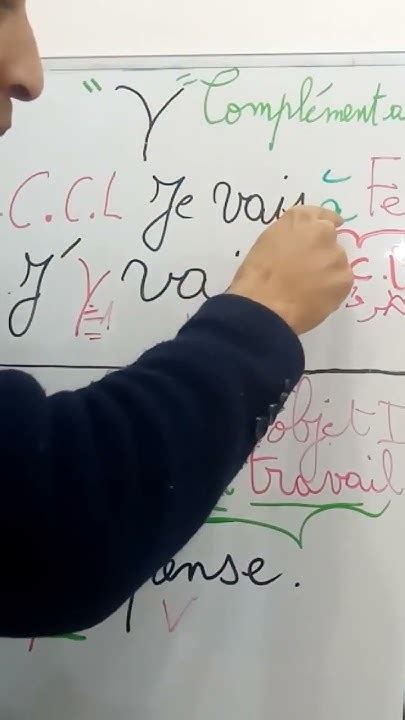 " Y " Complément
C.C.L Je vais à Fe
J'y vai C.
objet I
travail
ense.
V